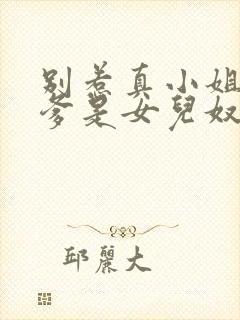 别惹真小姐
爹是女兒奴
邱麗大